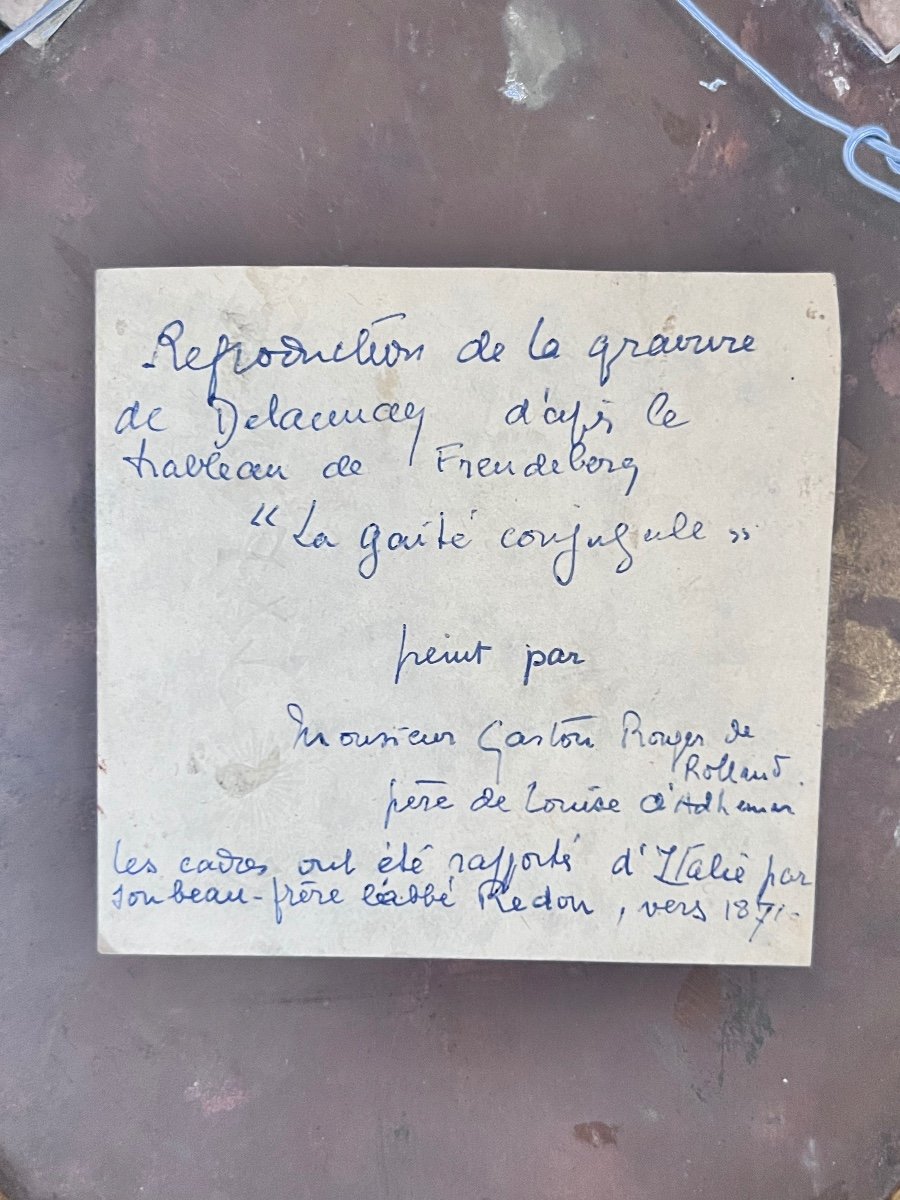 Reproduction de la gravure
de Delaunay d'après le
tableau de Freudeberg
“ La gaité conjugale ”
peint par
Monsieur Gaston Roger de
Rolland.
père de Louise d'Adhemar
les cadres ont été rapportés d'Italie par
son beau-frère l'abbé Redon, vers